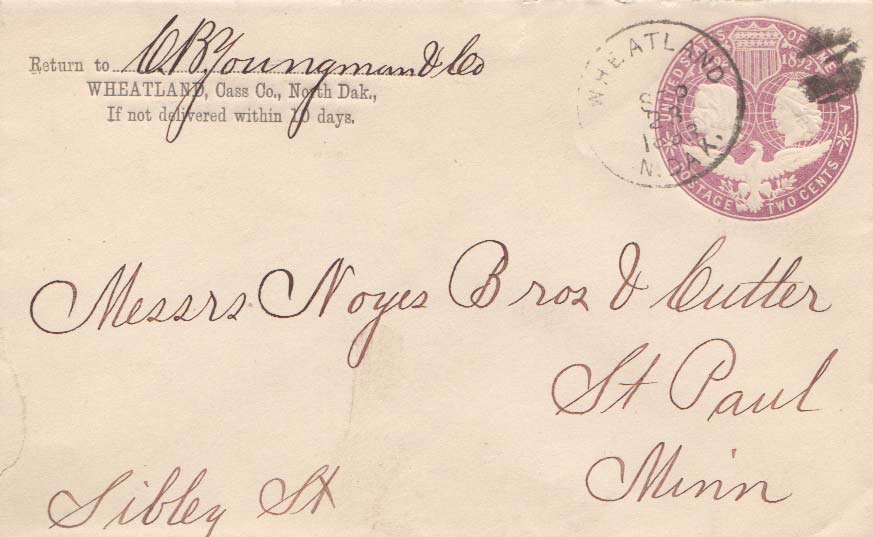 Return to C.B. Youngman & Co
WHEATLAND, Cass Co., North Dak.,
If not delivered within 10 days.
WHEATLAND
1893
N. DAK.
UNITED STATES OF AMERICA
1892
POSTAGE TWO CENTS.
Messrs Noyes Bros & Cutter
St Paul
Minn
Sibley St